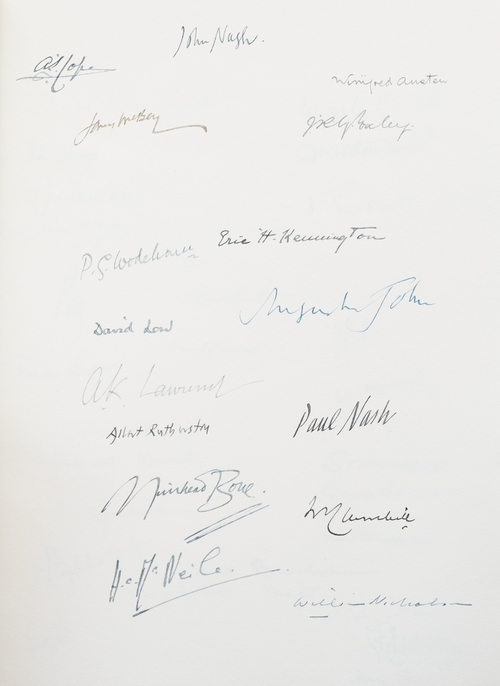 John Nash.
A.S. Cope
Winifred Austen
James McBey
P.G. Wodehouse
Eric H. Kennington
Augustus John
David Low
A.K. Lawrence
Albert Rutherston
Paul Nash
Muirhead Bone.
H.C. McNeile.
William Nicholson